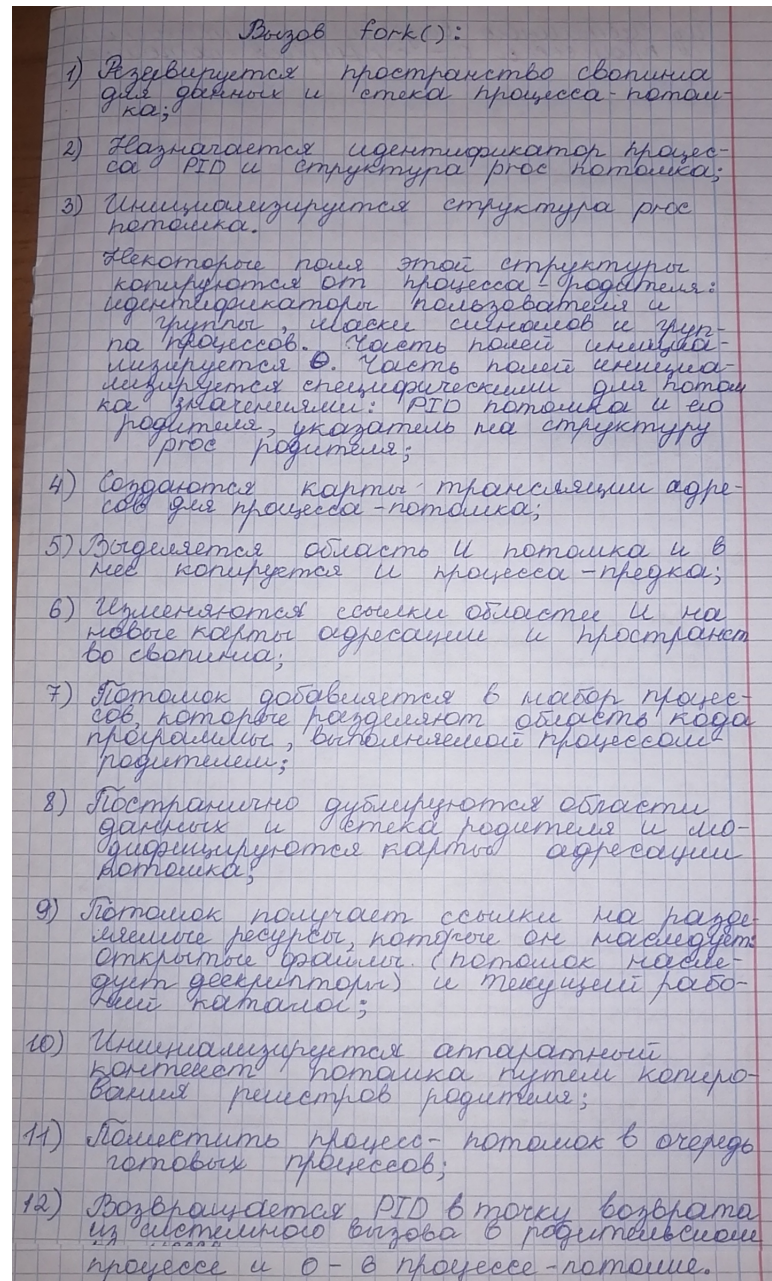 Вызов fork():
1) Резервируется пространство свопинга
для данных и стека процесса-потом-
ка;
2) Назначается идентификатор процес-
са PID и структура proc потомка;
3) Инициализируется структура proc
потомка.
Некоторые поля этой структуры
копируются от процесса-родителя:
идентификаторы пользователя и
группы, маски сигналов и груп-
па процессов. Часть полей инициа-
лизируется 0. Часть полей инициа-
лизируется специфическими для потом
ка значениями: PID потомка и его
родителя, указатель на структуру
proc родителя;
4) Создаются карты трансляции адре-
сов для процесса-потомка;
5) Выделяется область U потомка и в
неё копируется U процесса-предка;
6) Изменяются ссылки области U на
новые карты адресации и пространст
во свопинга;
7) Потомок добавляется в набор процес-
сов, которые разделяют область кода
программы, выполняемой процессом-
родителем;
8) Постранично дублируются области
данных и стека родителя и мо-
дифицируются карты адресации
потомка;
9) Потомок получает ссылки на разде-
ляемые ресурсы, которые он наследует:
открытые файлы (потомок насле-
дует дескрипторы) и текущий рабо-
чий каталог;
10) Инициализируется аппаратный
контекст потомка путем копиро-
вания регистров родителя;
11) Поместить процесс-потомок в очередь
готовых процессов;
12) Возвращается PID в точку возврата
из системного вызова в родительском
процессе и 0 - в процессе-потомке.